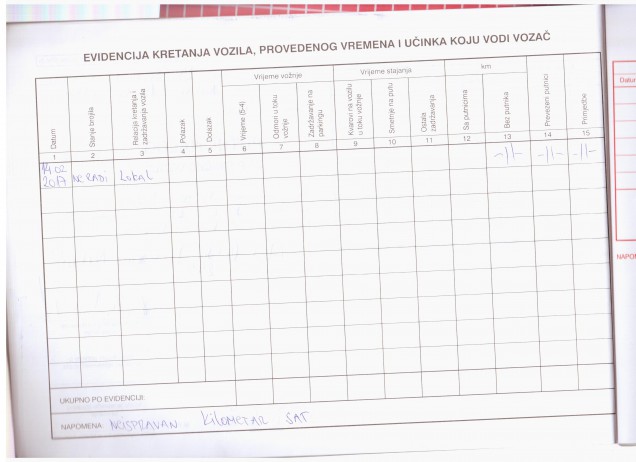 EVIDENCIJA KRETANJA VOZILA, PROVEDENOG VREMENA I UČINKA KOJU VODI VOZAČ
Vrijeme vožnje Vrijeme stajanja km
Datum
Stanje brojila
Relacija kretanja i zadržavanja vozila
Polazak
Dolazak
Vrijeme (5-4)
Odmori u toku vožnje
Zadržavanje na parkingu
Kvarovi na vozilu u toku vožnje
Smetnje na putu
Ostala zadržavanja
Sa putnicima
Bez putnika
Prevezeni putnici
Primjedbe
1 2 3 4 5 6 7 8 9 10 11 12 13 14 15
14.02 2017 NE RADI Lokal -//- -//- -//-
UKUPNO PO EVIDENCIJI:
NAPOMENA NEISPRAVAN KILOMETAR SAT
Datum
NAPOM